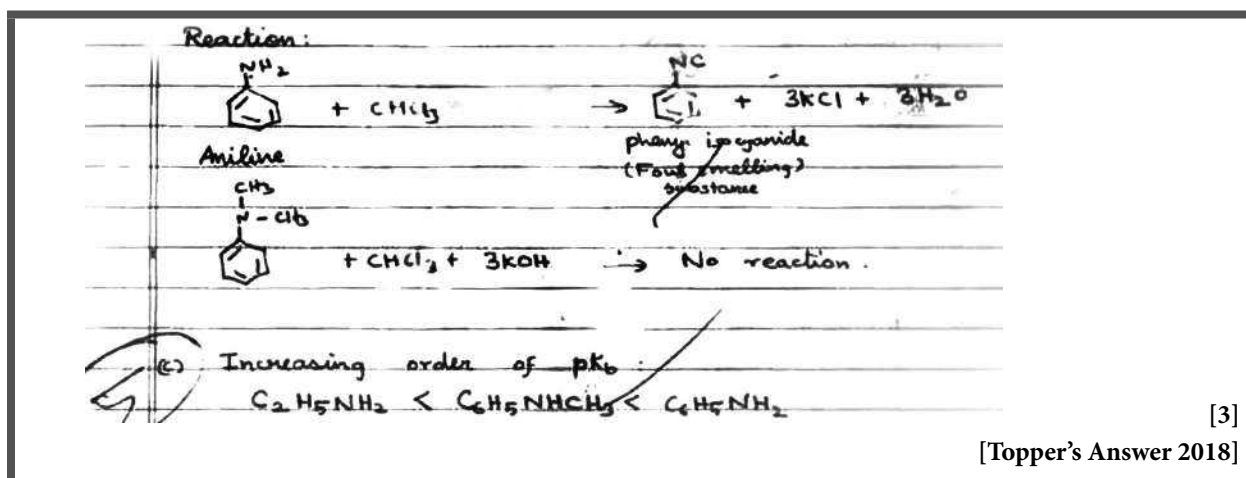 Reaction:
NH2
+ CHCl3 → NC + 3KCl + 3H2O
Aniline phenyl isocyanide
(Foul smelling)
substance
CH3
N - CH3
+ CHCl3 + 3KOH → No reaction.
(C) Increasing order of pKb :
C2H5NH2 < C6H5NHCH3 < C6H5NH2
[3]
[Topper's Answer 2018]